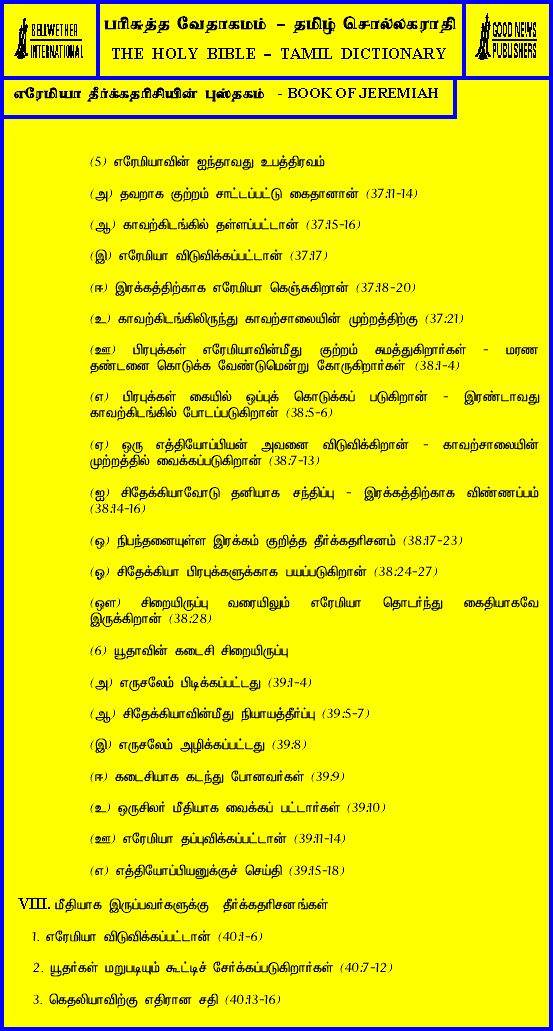 BELLWETHER
INTERNATIONAL
பரிசுத்த வேதாகமம் – தமிழ் சொல்லகராதி
THE HOLY BIBLE – TAMIL DICTIONARY
GOOD NEWS
PUBLISHERS
எரேமியா தீர்க்கதரிசியின் புஸ்தகம் - BOOK OF JEREMIAH
(5) எரேமியாவின் ஐந்தாவது உபத்திரவம்
(அ) தவறாக குற்றம் சாட்டப்பட்டு கைதானான் (37:11-14)
(ஆ) காவற்கிடங்கில் தள்ளப்பட்டான் (37:15-16)
(இ) எரேமியா விடுவிக்கப்பட்டான் (37:17)
(ஈ) இரக்கத்திற்காக எரேமியா கெஞ்சுகிறான் (37:18-20)
(உ) காவற்கிடங்கிலிருந்து காவற்சாலையின் முற்றத்திற்கு (37:21)
(ஊ) பிரபுக்கள் எரேமியாவின்மீது குற்றம் சுமத்துகிறார்கள் - மரண
தண்டனை கொடுக்க வேண்டுமென்று கோருகிறார்கள் (38:1-4)
(எ) பிரபுக்கள் கையில் ஒப்புக் கொடுக்கப் படுகிறான் - இரண்டாவது
காவற்கிடங்கில் போடப்படுகிறான் (38:5-6)
(ஏ) ஒரு எத்தியோப்பியன் அவனை விடுவிக்கிறான் - காவற்சாலையின்
முற்றத்தில் வைக்கப்படுகிறான் (38:7-13)
(ஐ) சிதேக்கியாவோடு தனியாக சந்திப்பு - இரக்கத்திற்காக விண்ணப்பம்
(38:14-16)
(ஒ) நிபந்தனையுள்ள இரக்கம் குறித்த தீர்க்கதரிசனம் (38:17-23)
(ஓ) சிதேக்கியா பிரபுக்களுக்காக பயப்படுகிறான் (38:24-27)
(ஔ) சிறையிருப்பு வரையிலும் எரேமியா தொடர்ந்து கைதியாகவே
இருக்கிறான் (38:28)
(6) யூதாவின் கடைசி சிறையிருப்பு
(அ) எருசலேம் பிடிக்கப்பட்டது (39:1-4)
(ஆ) சிதேக்கியாவின்மீது நியாயத்தீர்ப்பு (39:5-7)
(இ) எருசலேம் அழிக்கப்பட்டது (39:8)
(ஈ) கடைசியாக கடந்து போனவர்கள் (39:9)
(உ) ஒருசிலர் மீதியாக வைக்கப் பட்டார்கள் (39:10)
(ஊ) எரேமியா தப்புவிக்கப்பட்டான் (39:11-14)
(எ) எத்தியோப்பியனுக்குச் செய்தி (39:15-18)
VIII. மீதியாக இருப்பவர்களுக்கு தீர்க்கதரிசனங்கள்
1. எரேமியா விடுவிக்கப்பட்டான் (40:1-6)
2. யூதர்கள் மறுபடியும் கூட்டிச் சேர்க்கப்படுகிறார்கள் (40:7-12)
3. கெதலியாவிற்கு எதிரான சதி (40:13-16)